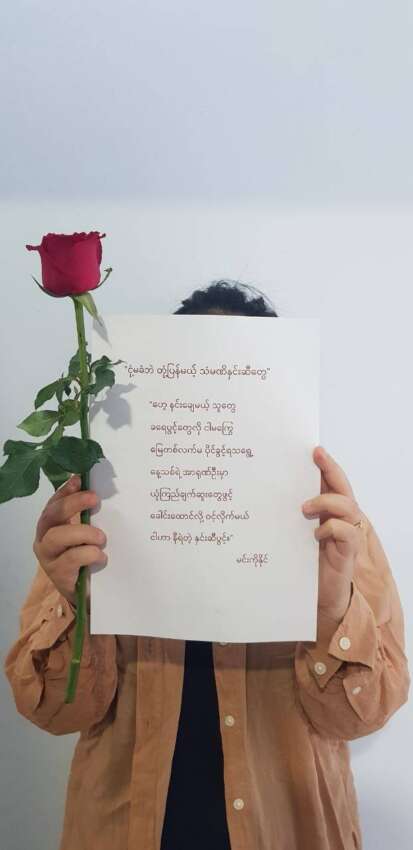 "ငုံ့မခံဘဲ တုံ့ပြန်မယ့် သံမဏိနှင်းဆီတွေ"
"ဟေ့ နင်းချေမယ့် သူတွေ
ခရေပွင့်တွေလို ငါမကြွေ
မြေတစ်လက်မ ပိုင်ခွင့်ရသရွေ့
နေ့သစ်ရဲ့ အာရုဏ်ဦးမှာ
ယုံကြည်ချက်ဆူးတွေဖွင့်
ခေါင်းထောင်လို့ ဝင့်လိုက်မယ်
ငါဟာ နီရဲတဲ့ နှင်းဆီပွင့်။"
မင်းကိုနိုင်